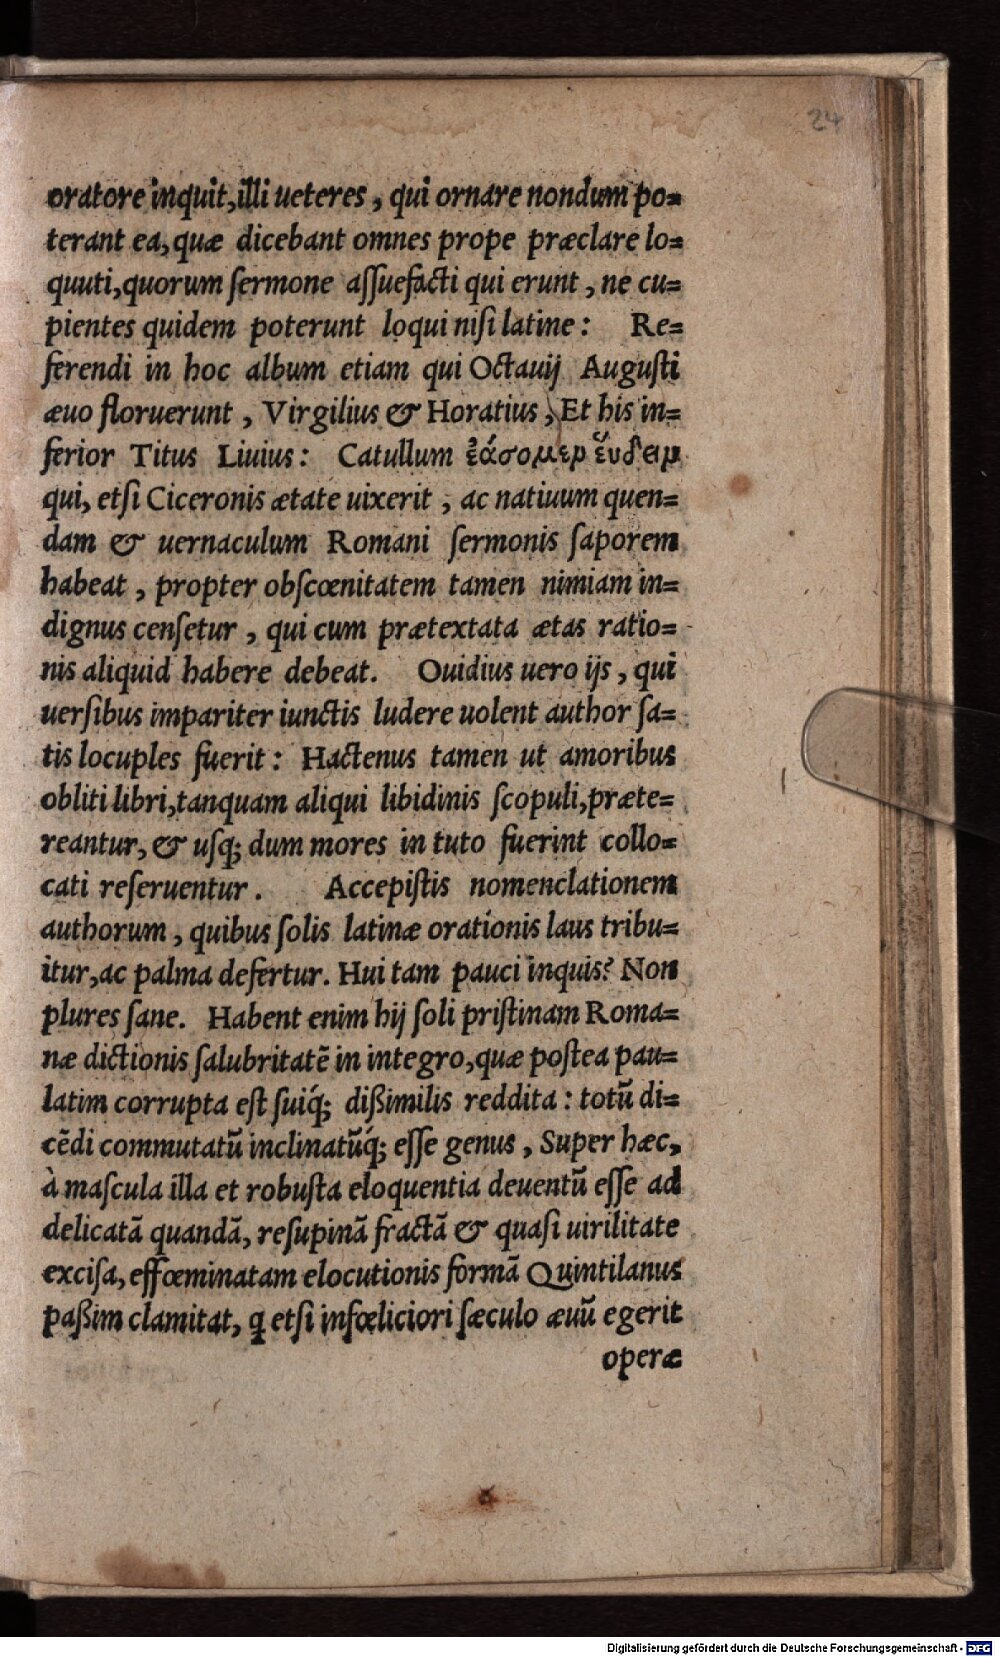 24
oratore inquit,illi ueteres, qui ornare nondum po=
terant ea,quæ dicebant omnes prope præclare lo=
quuti,quorum ſermone aſſuefacti qui erunt, ne cu=
pientes quidem poterunt loqui niſi latine: Re=
ferendi in hoc album etiam qui Octauij Auguſti
æuo floruerunt, Virgilius & Horatius, Et his in=
ferior Titus Liuius: Catullum ἐάσομεν εὕδειν
qui, etſi Ciceronis ætate uixerit, ac natiuum quen=
dam & uernaculum Romani ſermonis ſaporem
habeat, propter obſcœnitatem tamen nimiam in=
dignus cenſetur, qui cum prætextata ætas ratio=
nis aliquid habere debeat. Ouidius uero ijs, qui
uerſibus impariter iunctis ludere uolent author ſa=
tis locuples fuerit: Hactenus tamen ut amoribus
obliti libri,tanquam aliqui libidinis ſcopuli,præte=
reantur, & uſq; dum mores in tuto fuerint collo=
cati reſeruentur. Accepiſtis nomenclationem
authorum, quibus ſolis latinæ orationis laus tribu=
itur,ac palma defertur. Hui tam pauci inquis? Non
plures ſane. Habent enim hij ſoli priſtinam Roma=
næ dictionis ſalubritatē in integro,quæ poſtea pau=
latim corrupta eſt ſuiq́; dißimilis reddita: totū di=
cēdi commutatū inclinatūq́; eſſe genus, Super hæc,
à maſcula illa et robuſta eloquentia deuentū eſſe ad
delicatā quandā, reſupinā fractā & quaſi uirilitate
exciſa, effœminatam elocutionis formā Quintilanus
paßim clamitat, ꝗ etſi infœliciori ſæculo æuū egerit
operæ
Digitalisierung gefördert durch die Deutsche Forschungsgemeinschaft - DFG